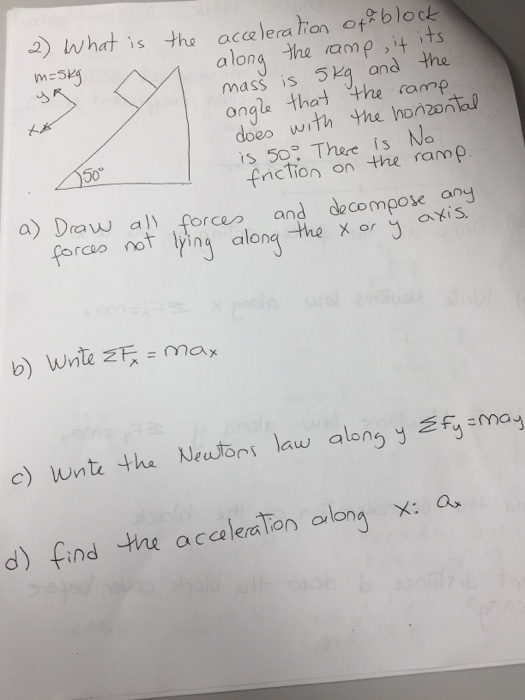 2) What is the acceleration of a block
along the ramp, if its
m=5kg
mass is 5kg and the
y
angle that the ramp
x
does with the horizontal
is 50°. There is No
50°
friction on the ramp.
a) Draw all forces and decompose any
forces not lying along the x or y axis.
b) Write ΣFx = max
c) Write the Newtons law along y ΣFy=may
d) find the acceleration along x: ax